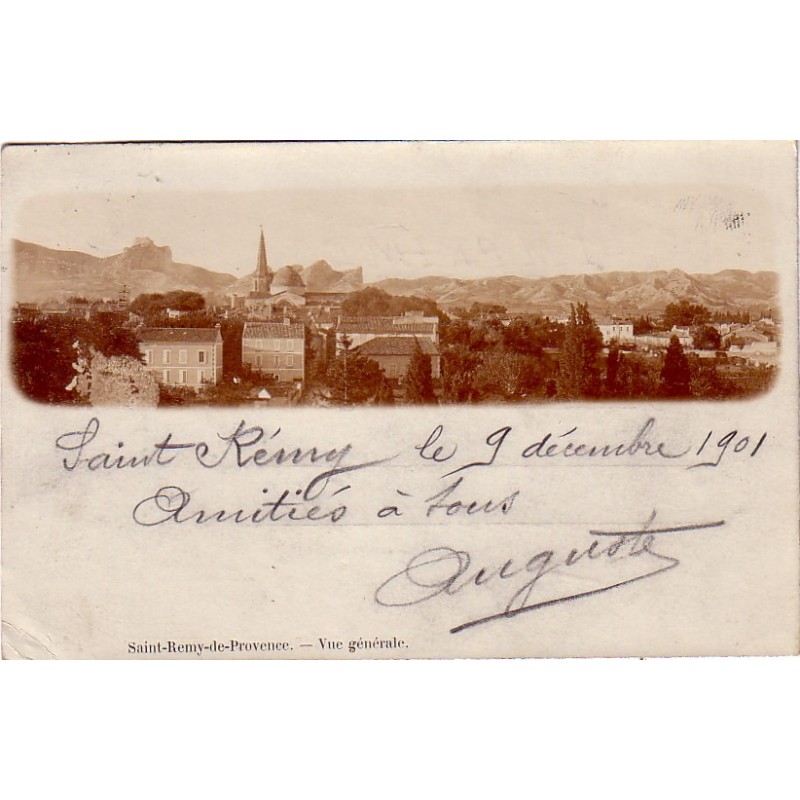 Saint Rémy le 9 décembre 1901
Amitiés à tous
Auguste
Saint-Remy-de-Provence. — Vue générale.